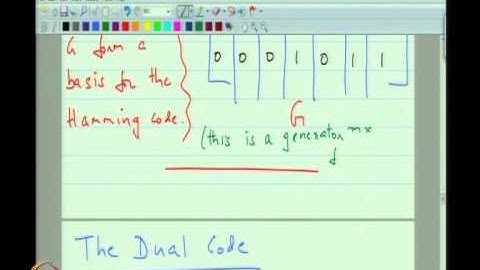 G form a
basis for the
Hamming code.
0 0 0 1 0 1 1
G
(this is a generator mx
The Dual Code